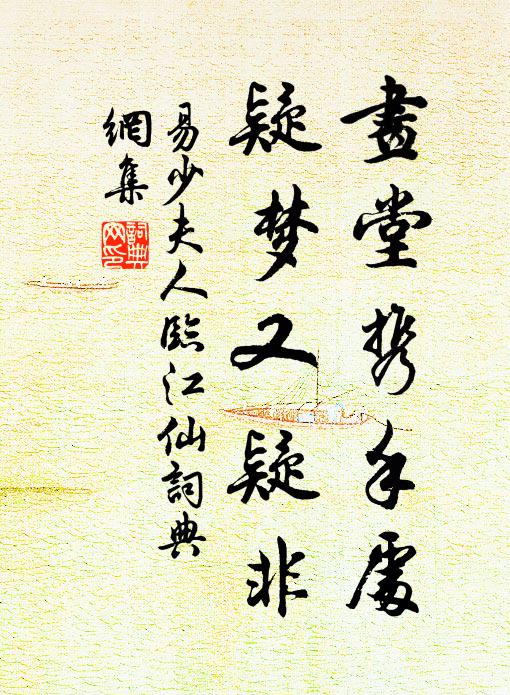 畫堂携手處
疑梦又疑非
易少夫人臨江仙詞典
網集
詞典
网印